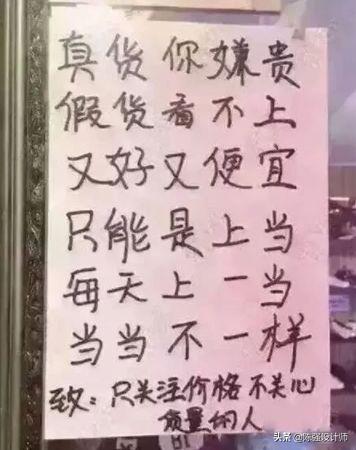 真货你嫌贵
假货看不上
又好又便宜
只能是上当
每天上一当
当当不一样
致：只关注价格不关心
质量的人
头条 @陈强设计师